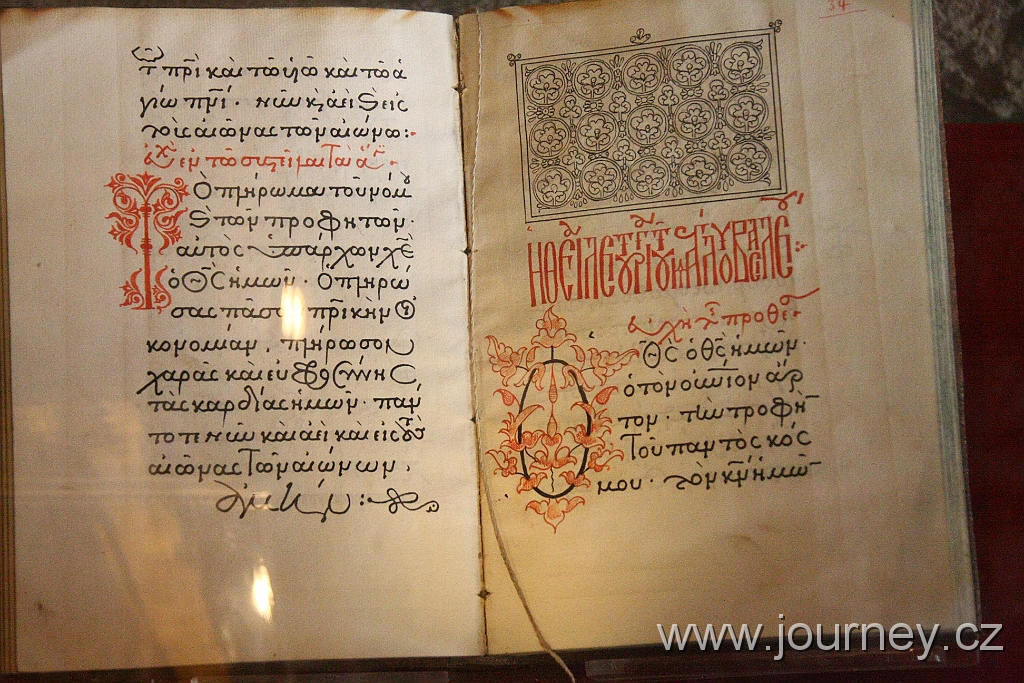 τ πρὶ καὶ τῶ ὑῶ καὶ τῶ ἁ
γίω πνὶ · νῦν κ ἀεὶ ϗ εἰς
τοὺς αἰῶνας τῶν αἰώνω:·
ἐν τῶ συστεῖλαι τὰ ἅ
Τὸ πλήρωμα τοῦ νόμ
ϗ τῶν προφητῶν·
αὐτὸς ὑπάρχων χὲ
ὁ θς ἡμῶν· ὁ πληρώ
σας πᾶσαν πρικὴν οἰ
κονομίαν, πλήρωσον
χαρᾶς καὶ εὐφροσύνης
τὰς καρδίας ἡμῶν· πάν
τοτε νῦν καὶ ἀεὶ καὶ εἰς τοὺς
αἰῶνας τῶν αἰώνων.
34
Η ΘΕΙ ΛΕΙΤΟΥΡΓΙ ΤΟΥ
εὐχὴ προθέ
Ὁ Θς ὁ θς ἡμῶν·
ὁ τὸν οὐνιον ἄρ
τον· τὴν τροφὴ
τοῦ παντὸς κόσ
μου· τὸν κν ἡμῶ
www.journey.cz